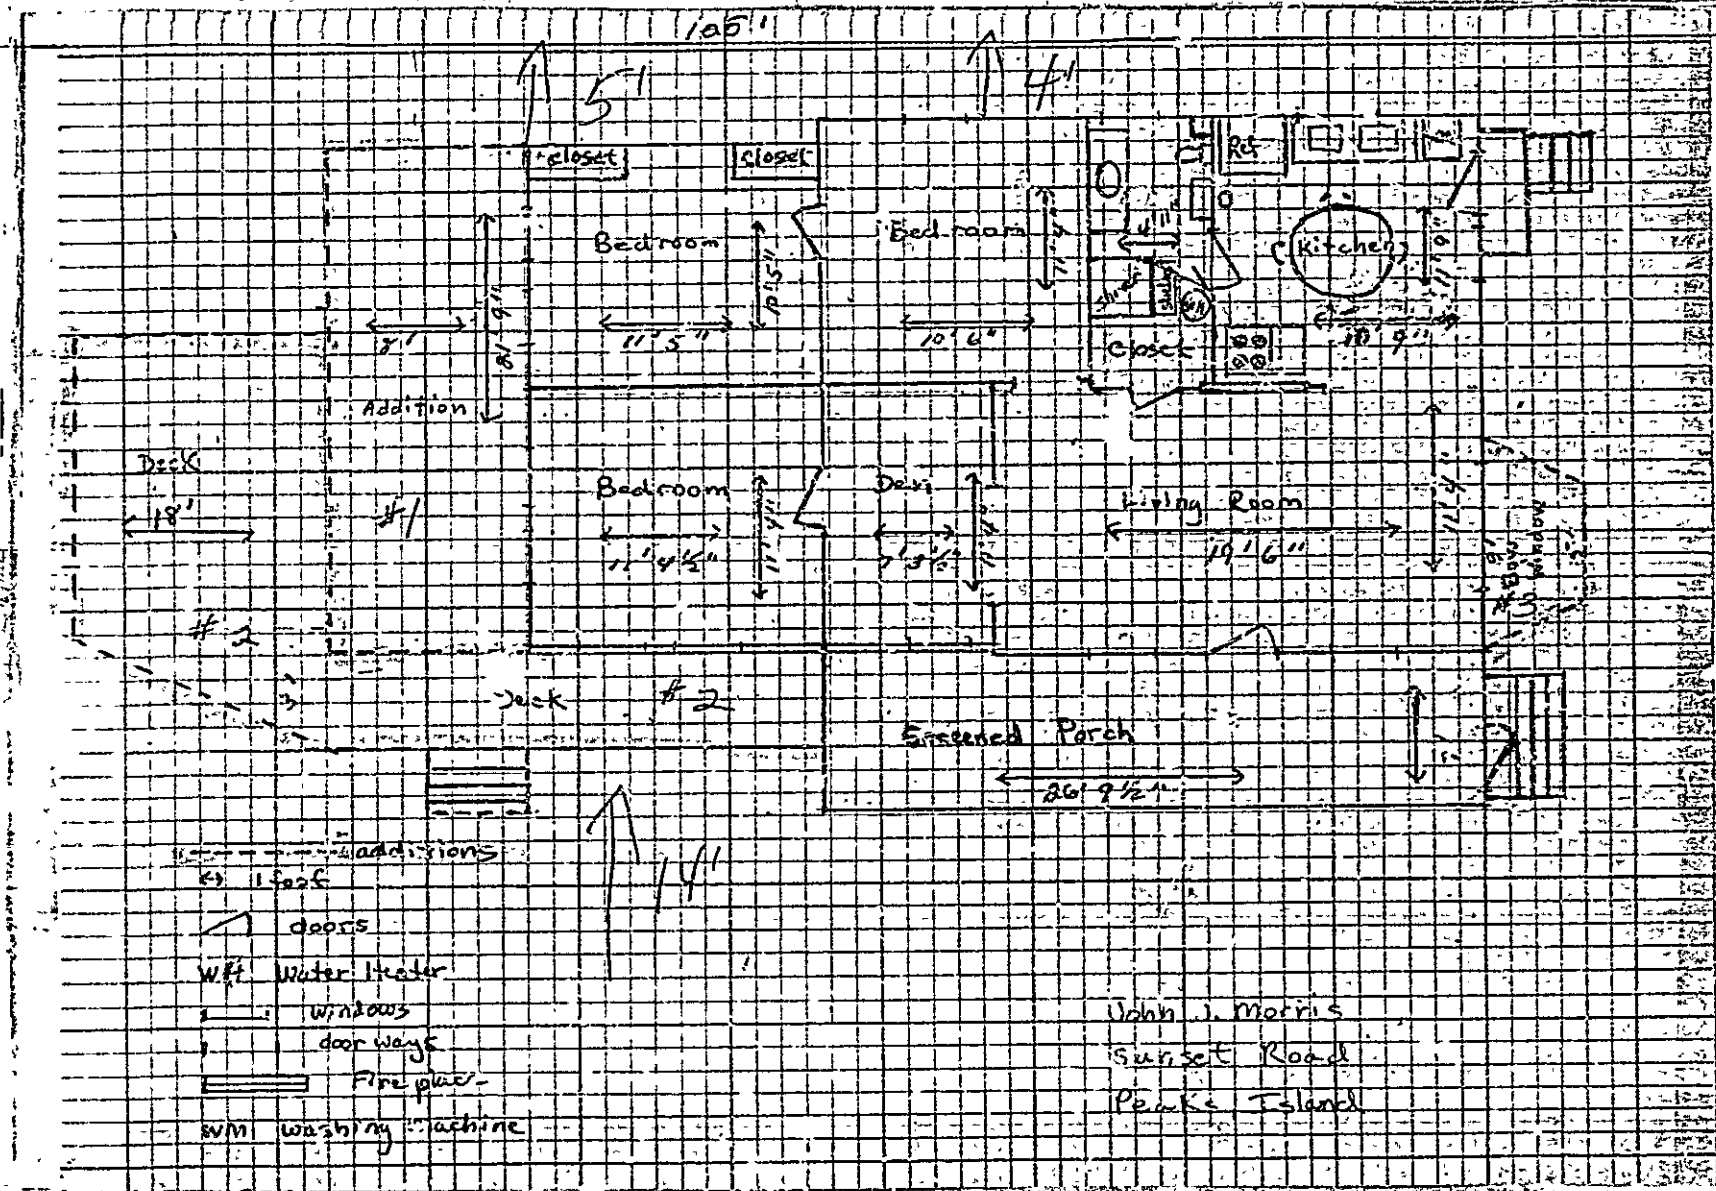 105'
5'
4'
closet
closet
Ref
Bedroom
Bedroom
Kitchen
10' 5"
11' 4"
4'
11' 9"
Shower
WH
8'
21' 9"
11' 5"
10' 6"
10' 9"
Closet
Addition
Deck
18'
#1
Bedroom
11' 4"
11' 4½"
Den
7' 3½"
11' 4"
Living Room
19' 6"
11' 4"
9'
Bow
Window
#2
3'
Deck
#2
Screened Porch
26' 9½"
14'
additions
↔ 1 foot
doors
WH Water Heater
windows
door ways
Fire place
WM washing machine
John J. Morris
Sunset Road
Peaks Island